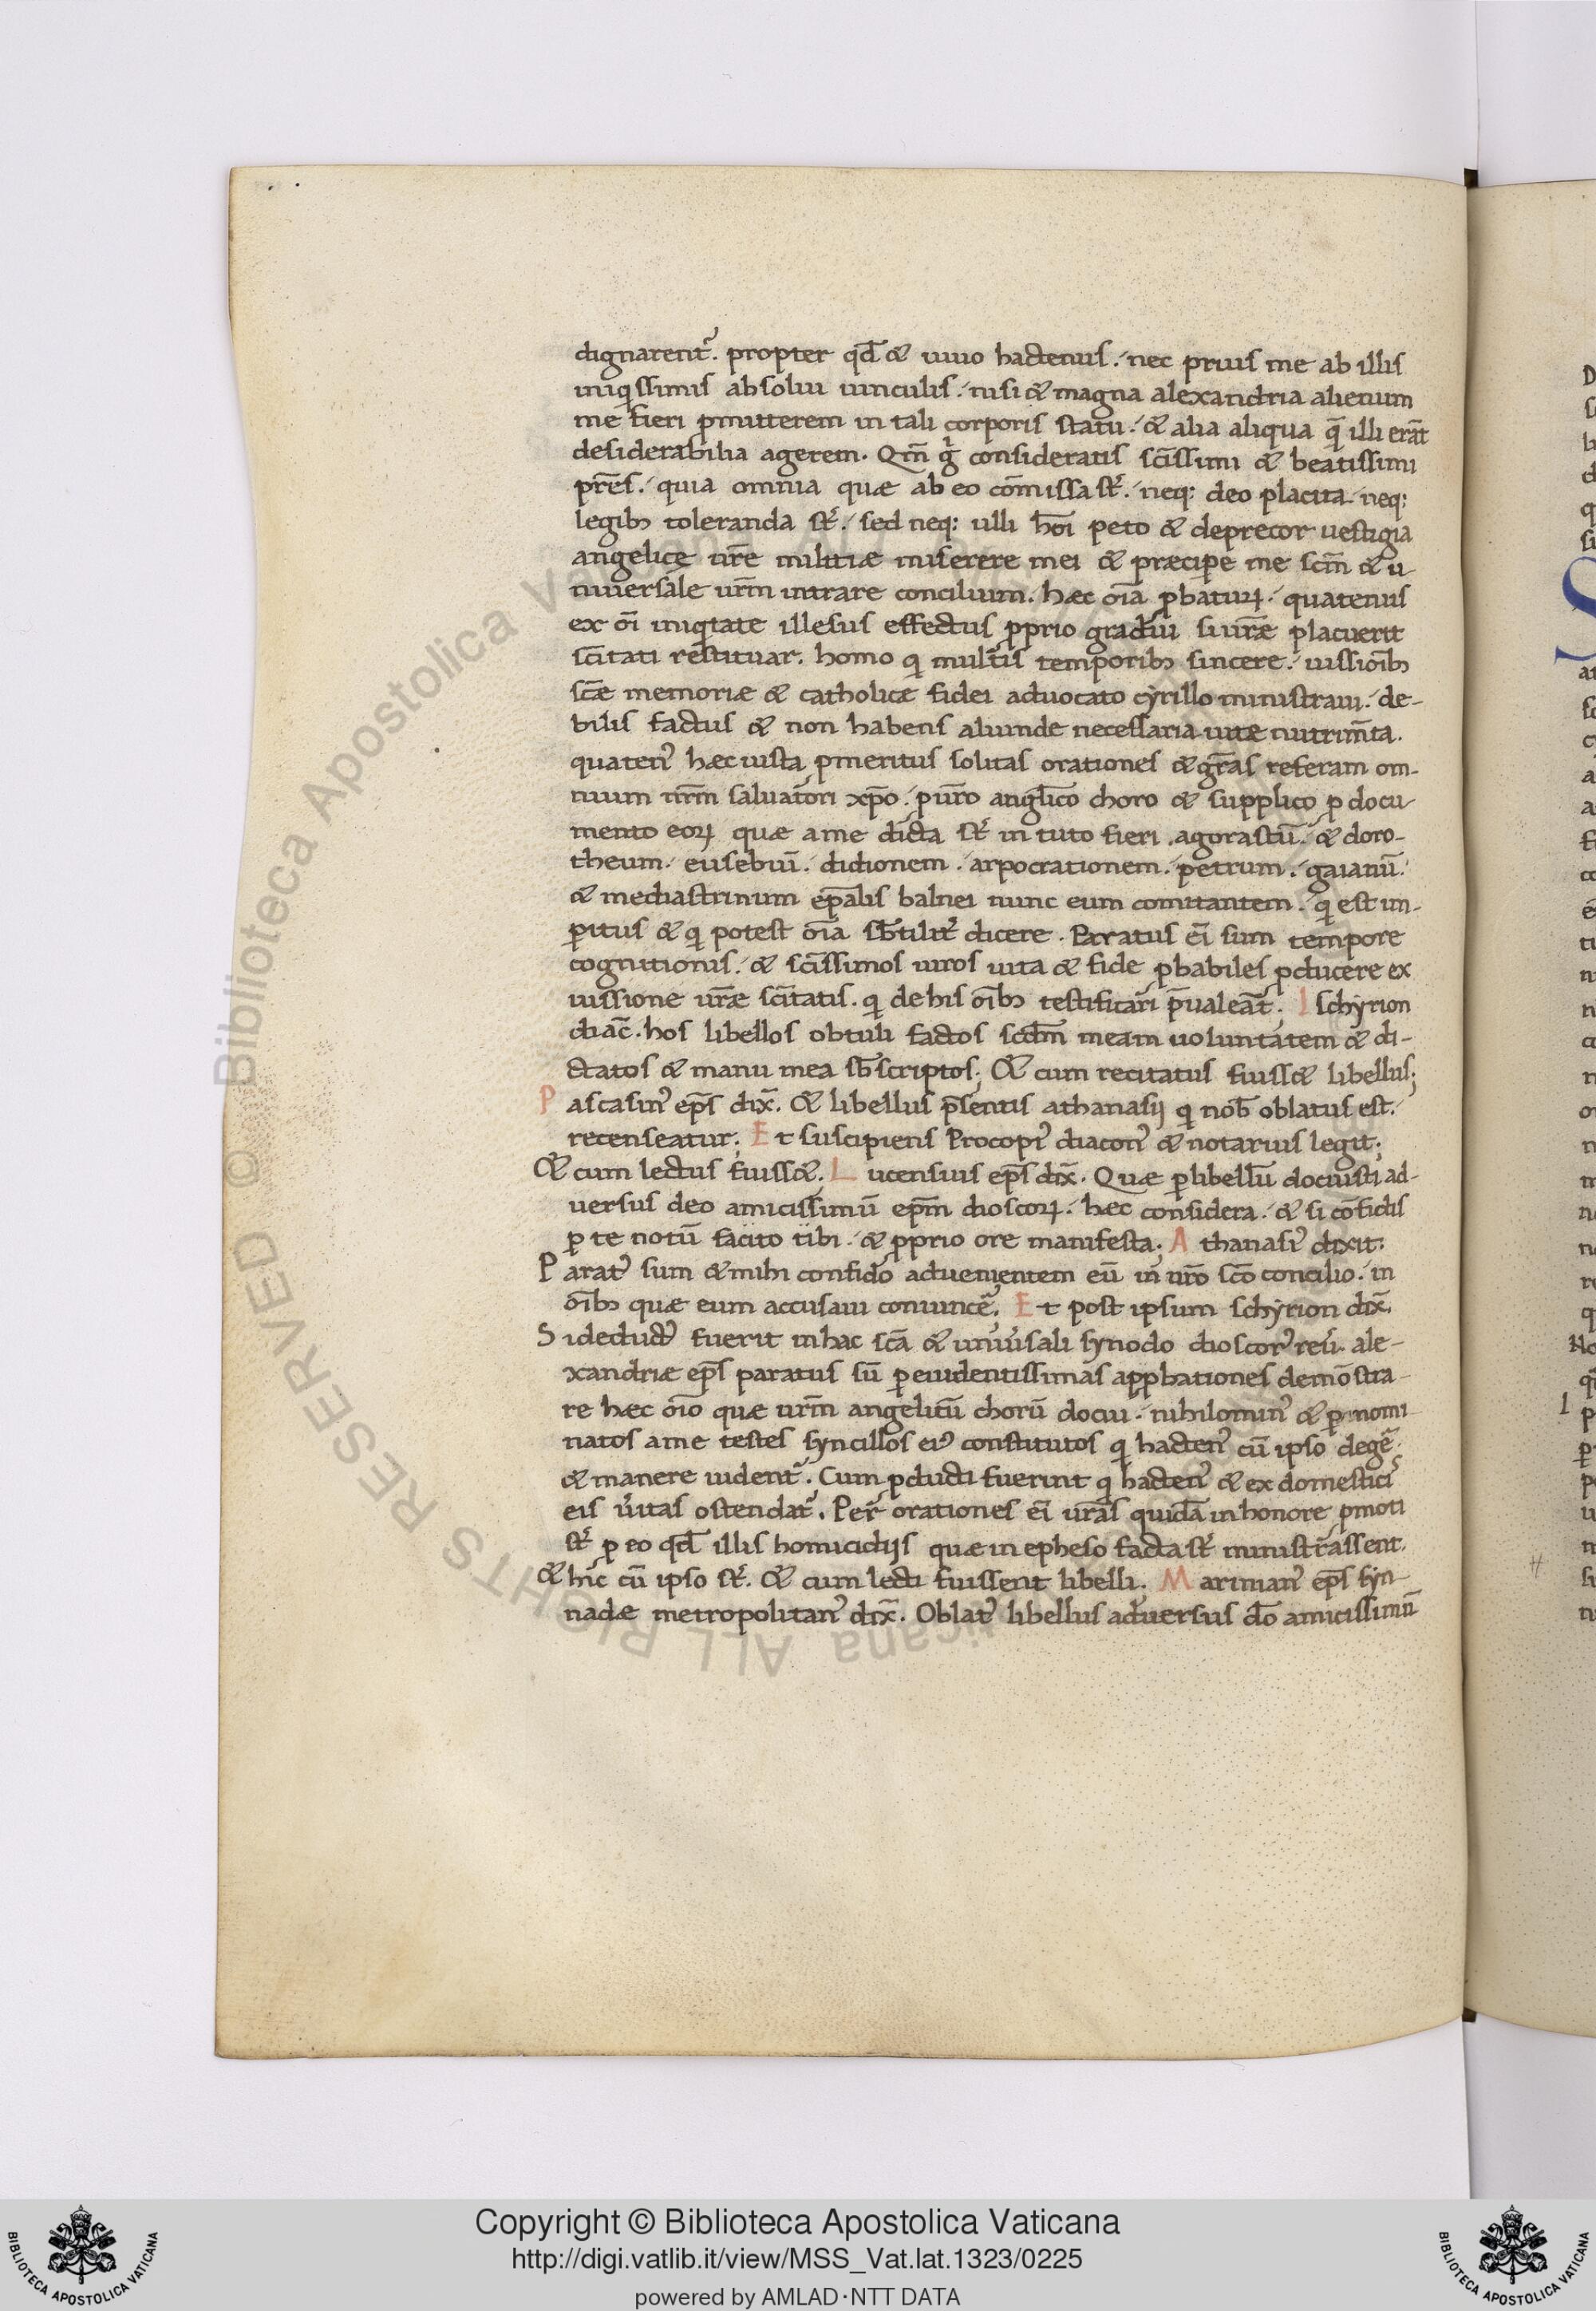 dignarent᷑. propter qd̄ & uiuo hactenus. nec prius me ab illis
iniqissimis absolui uinculis. nisi & magna alexandria alienum
me fieri pmitterem in tali corporis statu. & alia aliqua q̄ illi erāt
desiderabilia agerem. Qm̄ g̊ consideratis sc̄issimi & beatissimi
pr̄es. quia omnia quæ ab eo cōmissa st̄. neq; deo placita neq;
legib; toleranda st̄. sed neq; ulli hōi peto & deprecor uestigia
angelicę ur̄e militiæ miserere mei & præcipe me scm̄ & u
niuersale urm̄ intrare concilium. hæc oīa pbaturꝝ. quatenus
ex oī iniqtate illesus effectus pprio gradui si ur̄æ placuerit
sc̄itati restituar. homo q multis temporib; sincere. iussioīb;
sc̄e memoriæ & catholicæ fidei aduocato cyrillo ministraui. de-
bilis factus & non habens aliunde necessaria uitæ nutrim̄ta.
quaten᾿ hæc iusta pmeritus solitas orationes & gr̄as referam om-
nium nrm̄ saluatori xp̄o. pur̄o angl̄ico choro & supplico p docu-
mento eoꝝ quæ a me dicta st̄ in tuto fieri. agorastū. & doro-
theum. eusebiū. didionem. arpocrationem. petrum. gaianū.
& mediastrinum ep̄alis balnei nunc eum comitantem. q est im-
pitus & q potest oīa sb̄tilit᷑ dicere. Paratus ei̅ sum tempore
cognitionis. & sc̄issimos uiros uita & fide pbabiles pducere ex
iussione ur̄æ sc̄itatis. q de his oīb; testificari p̄ualeāt. I schyrion
diac̄. hos libellos obtuli factos scdm̄ meam uoluntatem & di-
ctatos & manu mea sb̄scriptos; & cum recitatus fuiss& libellus;
P ascasin᾿ ep̄s dix̄. & libellus p̄sentis athanasij q nob̄ oblatus est.
recenseatur; E t suscipiens Procopi᾿ diacon᾿ & notarius legit;
& cum lectus fuiss&. L ucensius ep̄s dix̄. Quæ p libellū docuisti ad-
uersus deo amicissimū ep̄m dioscoꝝ. hæc considera. & si cōfidis
p te notū facito tibi. & pprio ore manifesta; A thanasi᾿ dixit;
P arat᾿ sum & mihi confido aduenientem eū in nr̄o sc̄o concilio. in
oīb; quæ eum accusaui conuincē. E t post ipsum schyrion dix̄.
S i deduct᾿ fuerit in hac sc̄a & uniu᾿sali synodo dioscor᾿ reu. ale-
xandriæ ep̄s paratus sū p euidentissimas appbationes demōstra-
re hæc oīo quæ urm̄ angelicū chorū docui. nihilomin᾿ & p nomi
natos a me testes syncillos ei᾿ constitutos q hacten᾿ cū ipso degē
& manere uident᷑. Cum pducti fuerint q hacten᾿ & ex domestici
eis u᾿itas ostendat᷑. Per orationes ei̅ ur̄as quidā in honore pmoti
st̄ p eo qd̄ illis homicidijs quæ in epheso facta st̄ ministrassent.
& hic cū ipso st̄. & cum lecti fuissent libelli. M ariman᾿ ep̄s syn-
nadæ metropolitan᾿ dix̄. Oblat᾿ libellus aduersus dō amicissimū
Copyright © Biblioteca Apostolica Vaticana
http://digi.vatlib.it/view/MSS_Vat.lat.1323/0225
powered by AMLAD·NTT DATA
BIBLIOTECA APOSTOLICA VATICANA
BIBLIOTECA APOSTOLICA VATICANA